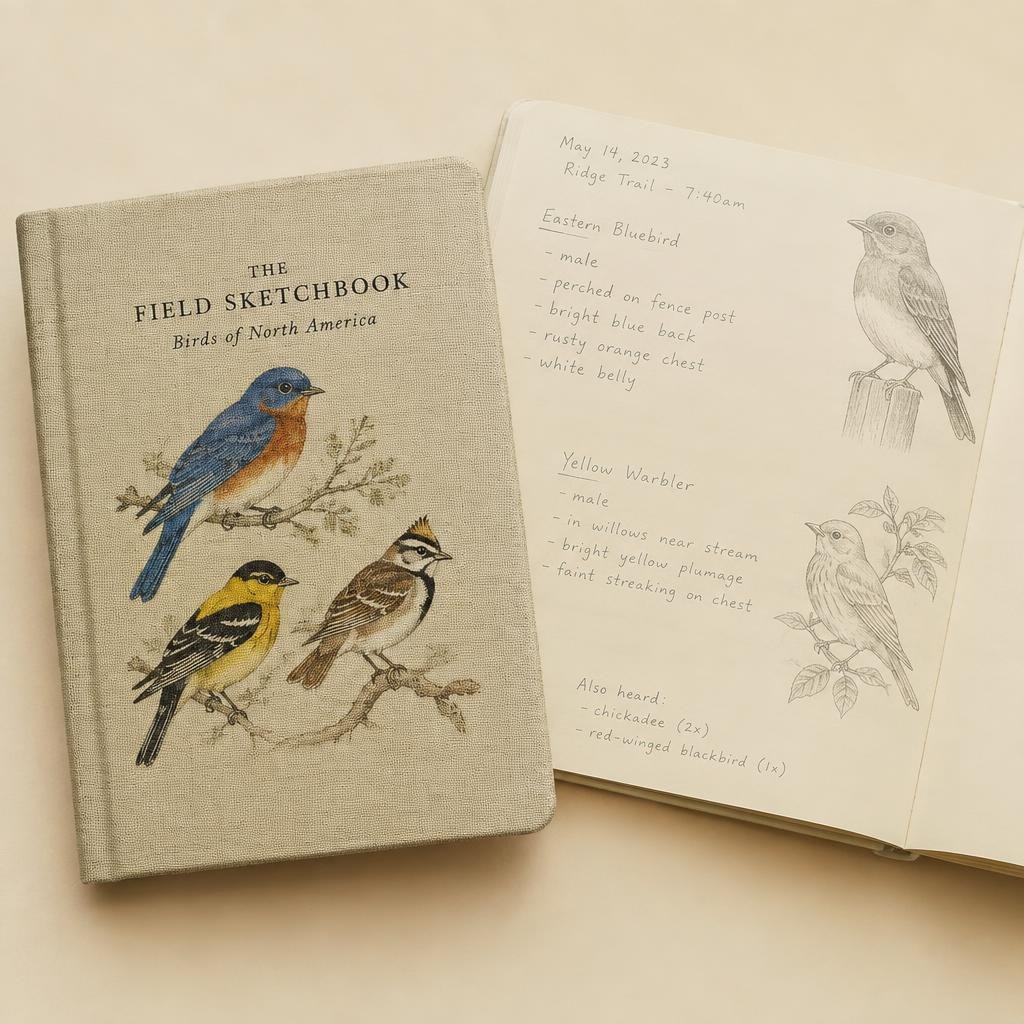 THE
FIELD SKETCHBOOK
Birds of North America
May 14, 2023
Ridge Trail - 7:40am
Eastern Bluebird
- male
- perched on fence post
- bright blue back
- rusty orange chest
- white belly
Yellow Warbler
- male
- in willows near stream
- bright yellow plumage
- faint streaking on chest
Also heard:
- chickadee (2x)
- red-winged blackbird (1x)